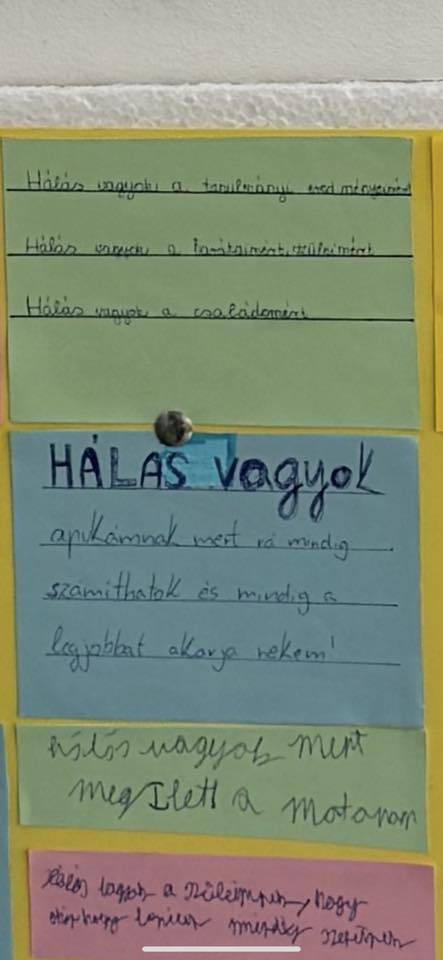 Hálás vagyok a tanulmányi eredményeimért
Hálás vagyok a barátaimért, szüleimért
Hálás vagyok a családomért
HÁLÁS vagyok
apukámnak mert rá mindig
számíthatok és mindig a
legjobbat akarja nekem!
hálás vagyok mert
meg Ilett a motorom
hálás vagyok a szüleimnek, hogy
mindig szeretnek